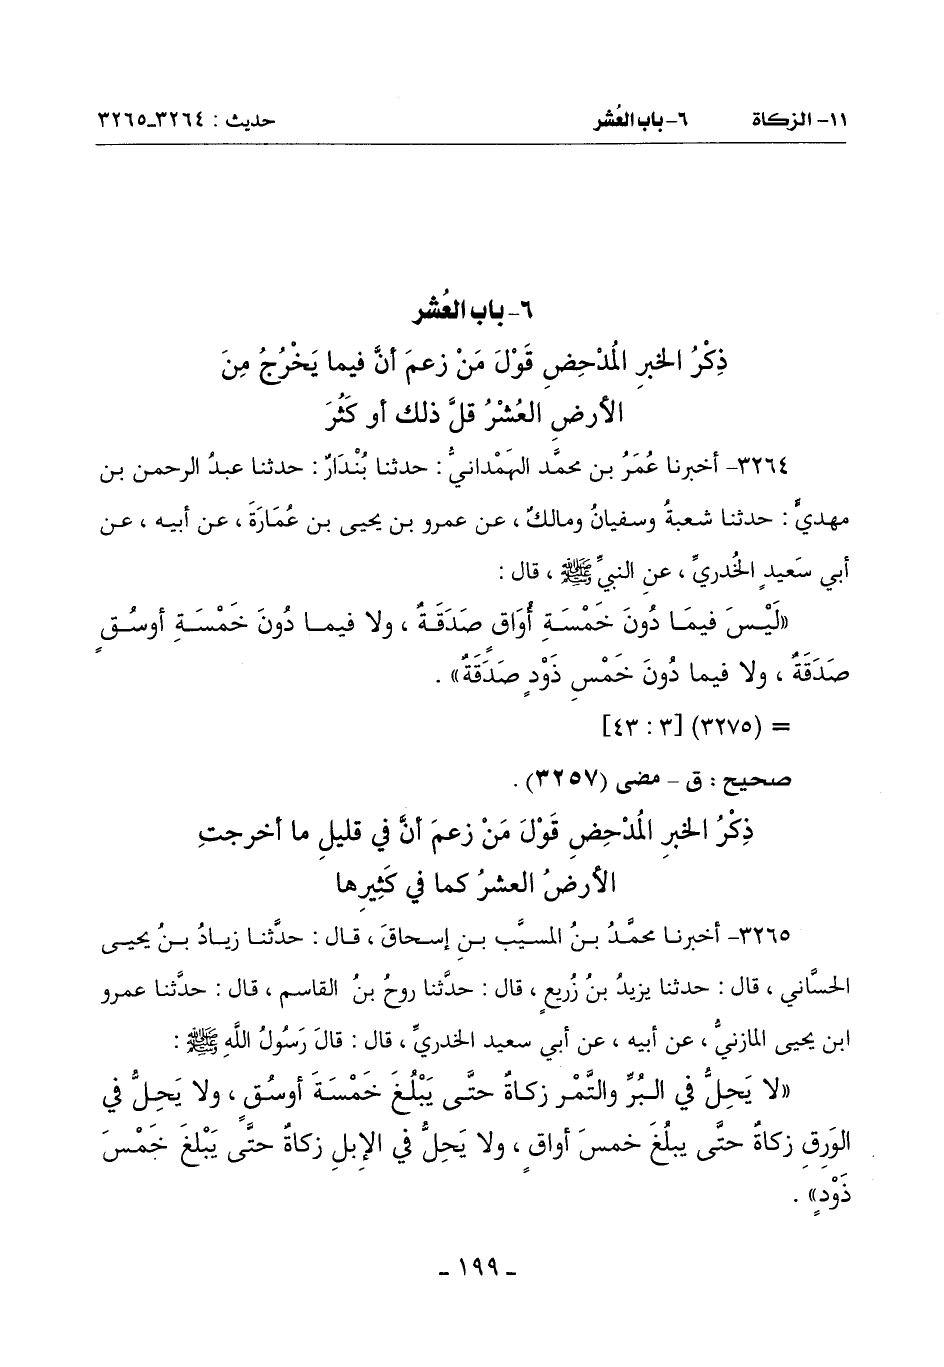 ١١- الزكاة ٦- باب العُشر حديث : ٣٢٦٤-٣٢٦٥
٦- باب العُشر
ذِكْرُ الخبرِ المُدْحِضِ قَوْلَ مَنْ زعمَ أنَّ فيما يَخْرُجُ مِنَ
الأرضِ العُشْرُ قلَّ ذلك أو كَثُرَ
٣٢٦٤- أخبرنا عُمَرُ بن محمَّد الهَمْدانيُّ : حدثنا بُنْدَارٌ : حدثنا عبدُ الرحمن بن
مهديٍّ : حدثنا شعبةُ وسفيانُ ومالكٌ ، عن عمرو بن يحيى بن عُمَارَةَ ، عن أبيه ، عن
أبي سَعيدٍ الخُدريِّ ، عن النبيِّ ﷺ ، قال :
«لَيْسَ فيمَا دُونَ خَمْسَةِ أُوَاقٍ صَدَقَةٌ ، ولا فيما دُونَ خَمْسَةِ أوسُقٍ
صَدَقَةٌ ، ولا فيما دُونَ خَمْسِ ذَوْدٍ صَدَقَةٌ» .
= (٣٢٧٥) [٣ : ٤٣]
صحيح : ق - مضى (٣٢٥٧) .
ذِكْرُ الخبرِ المُدْحِضِ قَوْلَ مَنْ زعمَ أنَّ في قليلِ ما أخرجتِ
الأرضُ العشرُ كما في كَثِيرِها
٣٢٦٥- أخبرنا محمَّدُ بنُ المسيَّب بنِ إسحاقَ ، قال : حدَّثنا زيادُ بنُ يحيى
الحسَّاني ، قال : حدثنا يزيدُ بنُ زُريعٍ ، قال : حدَّثنا روحُ بنُ القاسم ، قال : حدَّثنا عمرو
ابن يحيى المازنيُّ ، عن أبيه ، عن أبي سعيد الخدريِّ ، قال : قالَ رَسُولُ اللَّهِ ﷺ :
«لا يَحِلُّ في البُرِّ والتَّمْرِ زكاةٌ حتَّى يَبْلُغَ خَمْسَةَ أوسُقٍ ، ولا يَحِلُّ في
الوَرِقِ زكاةٌ حتَّى يبلُغَ خمسَ أواقٍ ، ولا يَحِلُّ في الإبلِ زكاةٌ حتَّى يَبْلغَ خَمْسَ
ذَوْدٍ» .
- ١٩٩ -